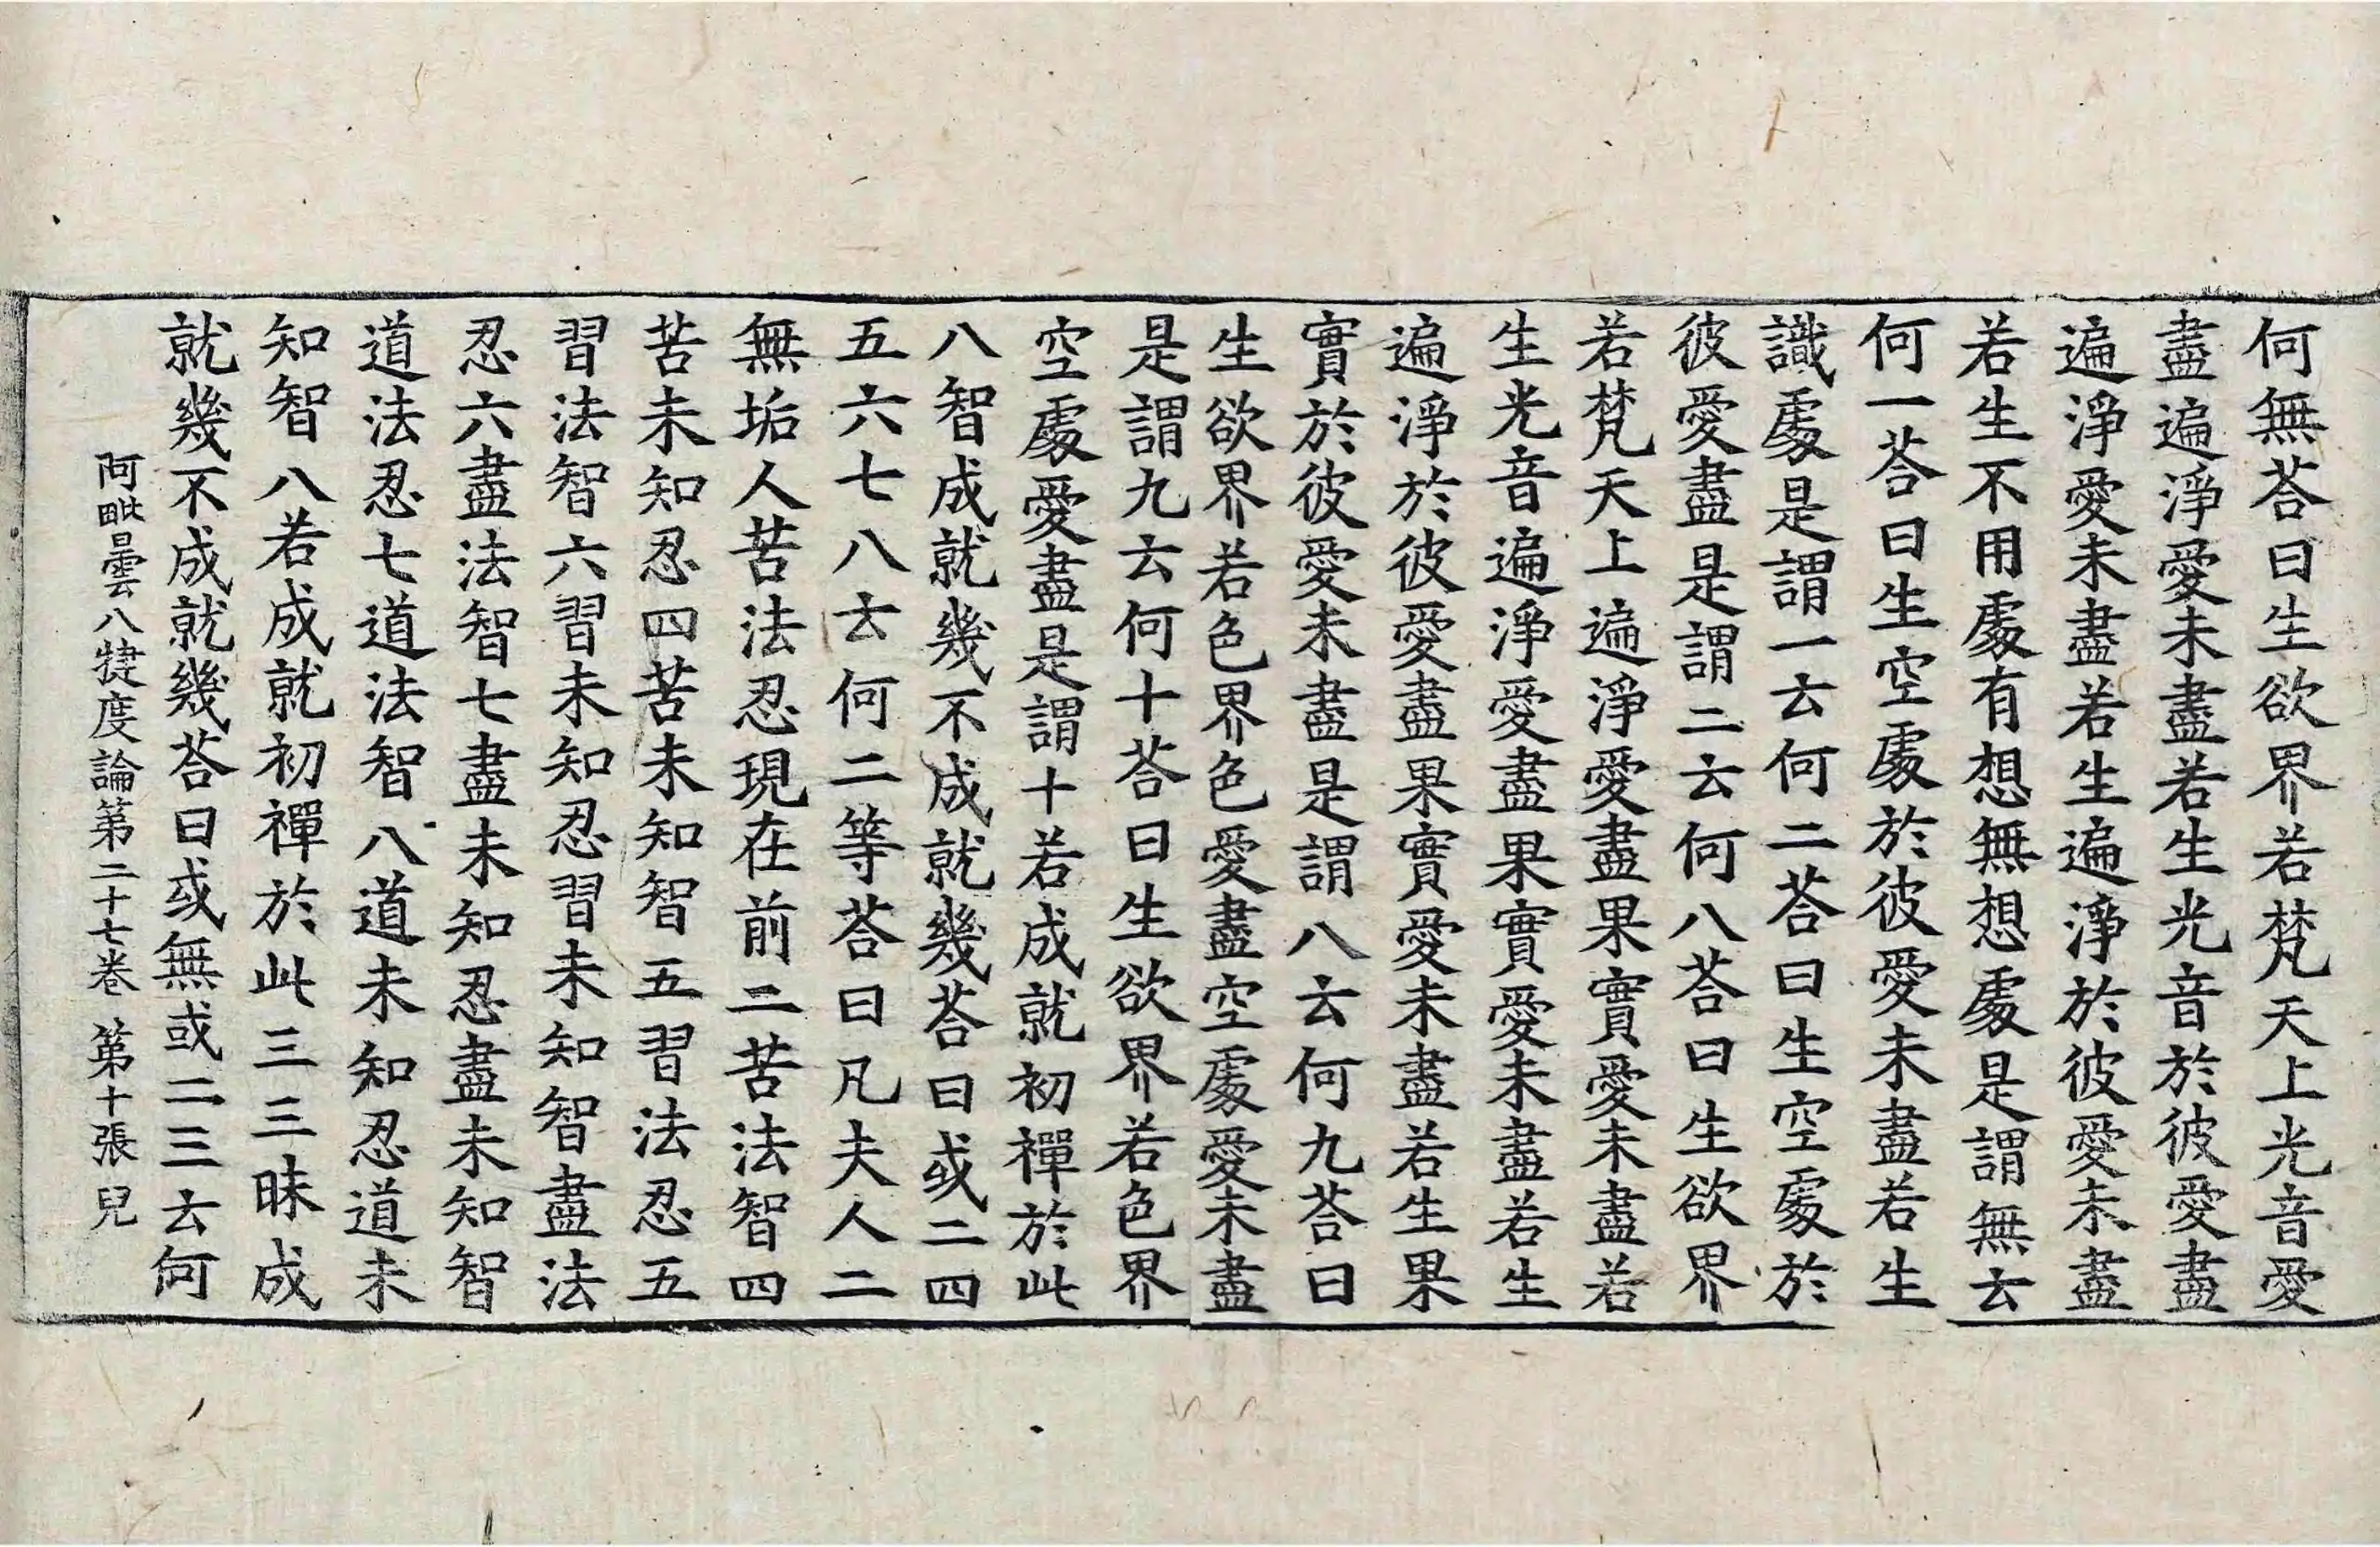 何無荅曰生欲界若梵天上光音愛
盡遍淨愛未盡若生光音於彼愛盡
遍淨愛未盡若生遍淨於彼愛未盡
若生不用處有想無想處是謂無云
何一荅曰生空處於彼愛未盡若生
識處是謂一云何二荅曰生空處於
彼愛盡是謂二云何八荅曰生欲界
若梵天上遍淨愛盡果實愛未盡若
生光音遍淨愛盡果實愛未盡若生
遍淨於彼愛盡果實愛未盡若生果
實於彼愛未盡是謂八云何九荅曰
生欲界若色界色愛盡空處愛未盡
是謂九云何十荅曰生欲界若色界
空處愛盡是謂十若成就初禪於此
八智成就幾不成就幾荅曰或二四
五六七八云何二等荅曰凡夫人二
無垢人苦法忍現在前二苦法智四
苦未知忍四苦未知智五習法忍五
習法智六習未知忍習未知智盡法
忍六盡法智七盡未知忍盡未知智
道法忍七道法智八道未知忍道未
知智八若成就初禪於此三三昧成
就幾不成就幾荅曰或無或二三云何
阿毗曇八揵度論第二十七卷 第十張 兒